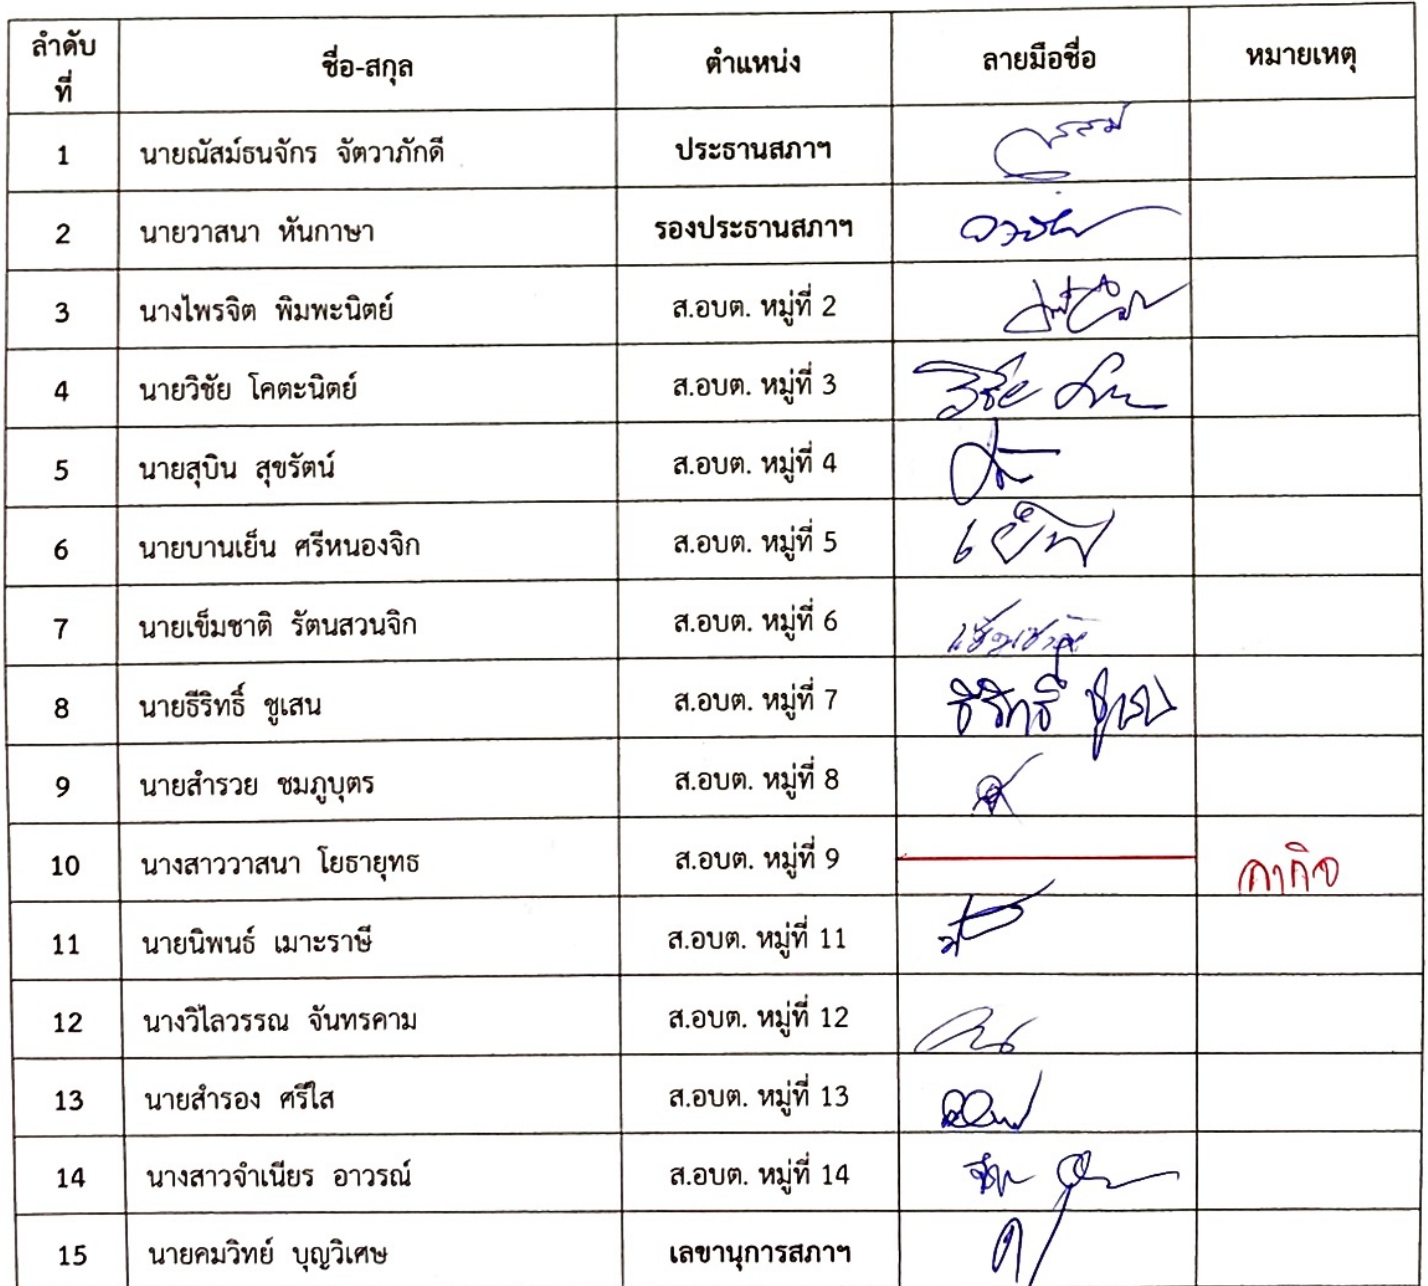 ลำดับที่ ชื่อ-สกุล ตำแหน่ง ลายมือชื่อ หมายเหตุ
1 นายณัสม์ธนจักร จัตวาภักดี ประธานสภาฯ
2 นายวาสนา หันกาษา รองประธานสภาฯ
3 นางไพรจิต พิมพะนิตย์ ส.อบต. หมู่ที่ 2
4 นายวิชัย โคตะนิตย์ ส.อบต. หมู่ที่ 3 วิชัย
5 นายสุบิน สุขรัตน์ ส.อบต. หมู่ที่ 4
6 นายบานเย็น ศรีหนองจิก ส.อบต. หมู่ที่ 5 เย็น
7 นายเข็มชาติ รัตนสวนจิก ส.อบต. หมู่ที่ 6
8 นายธีริทธิ์ ชูเสน ส.อบต. หมู่ที่ 7 ธีริทธิ์ ชูเสน
9 นายสำรวย ชมภูบุตร ส.อบต. หมู่ที่ 8
10 นางสาววาสนา โยธายุทธ ส.อบต. หมู่ที่ 9 ลากิจ
11 นายนิพนธ์ เมาะราษี ส.อบต. หมู่ที่ 11
12 นางวิไลวรรณ จันทรคาม ส.อบต. หมู่ที่ 12
13 นายสำรอง ศรีใส ส.อบต. หมู่ที่ 13
14 นางสาวจำเนียร อาวรณ์ ส.อบต. หมู่ที่ 14
15 นายคมวิทย์ บุญวิเศษ เลขานุการสภาฯ